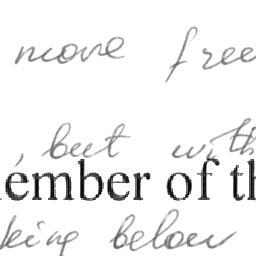 move free
, but with
ember of th
king below